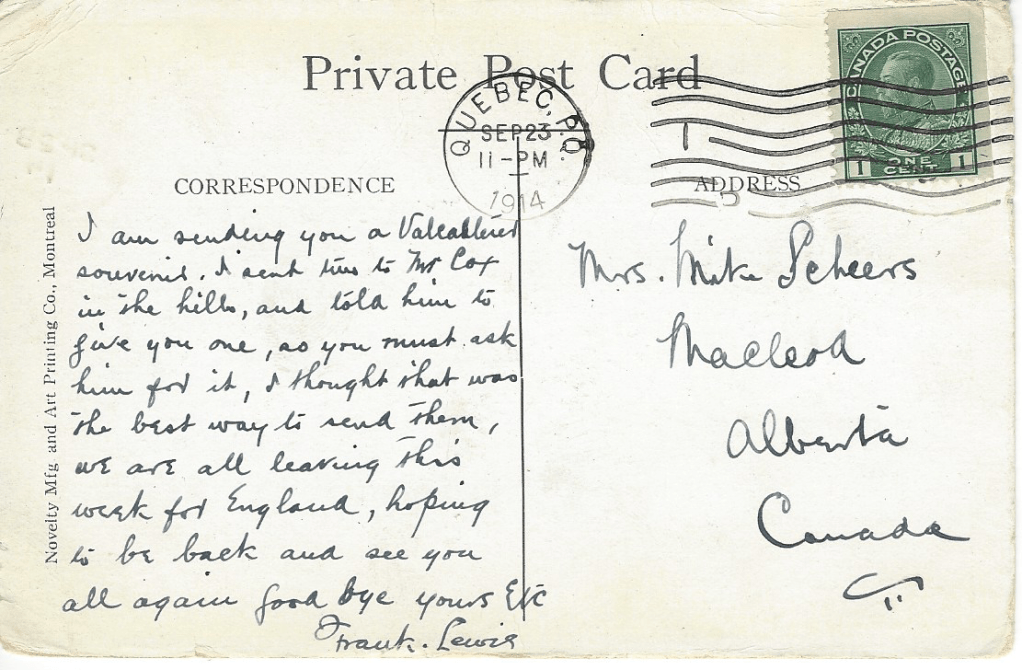 Private Post Card
QUEBEC, P.Q.
SEP 23
11-PM
1914
CANADA POSTAGE
1 ONE CENT 1
CORRESPONDENCE
ADDRESS
Novelty Mfg and Art Printing Co., Montreal
I am sending you a
souvenir. I sent two to Mr Cox
in the hills, and told him to
give you one, so you must ask
him for it, I thought that was
the best way to send them,
we are all leaving this
week for England, hoping
to be back and see you
all again good bye yours Etc
Frank. Lewis
Mrs. Mike Scheers
Macleod
Alberta
Canada